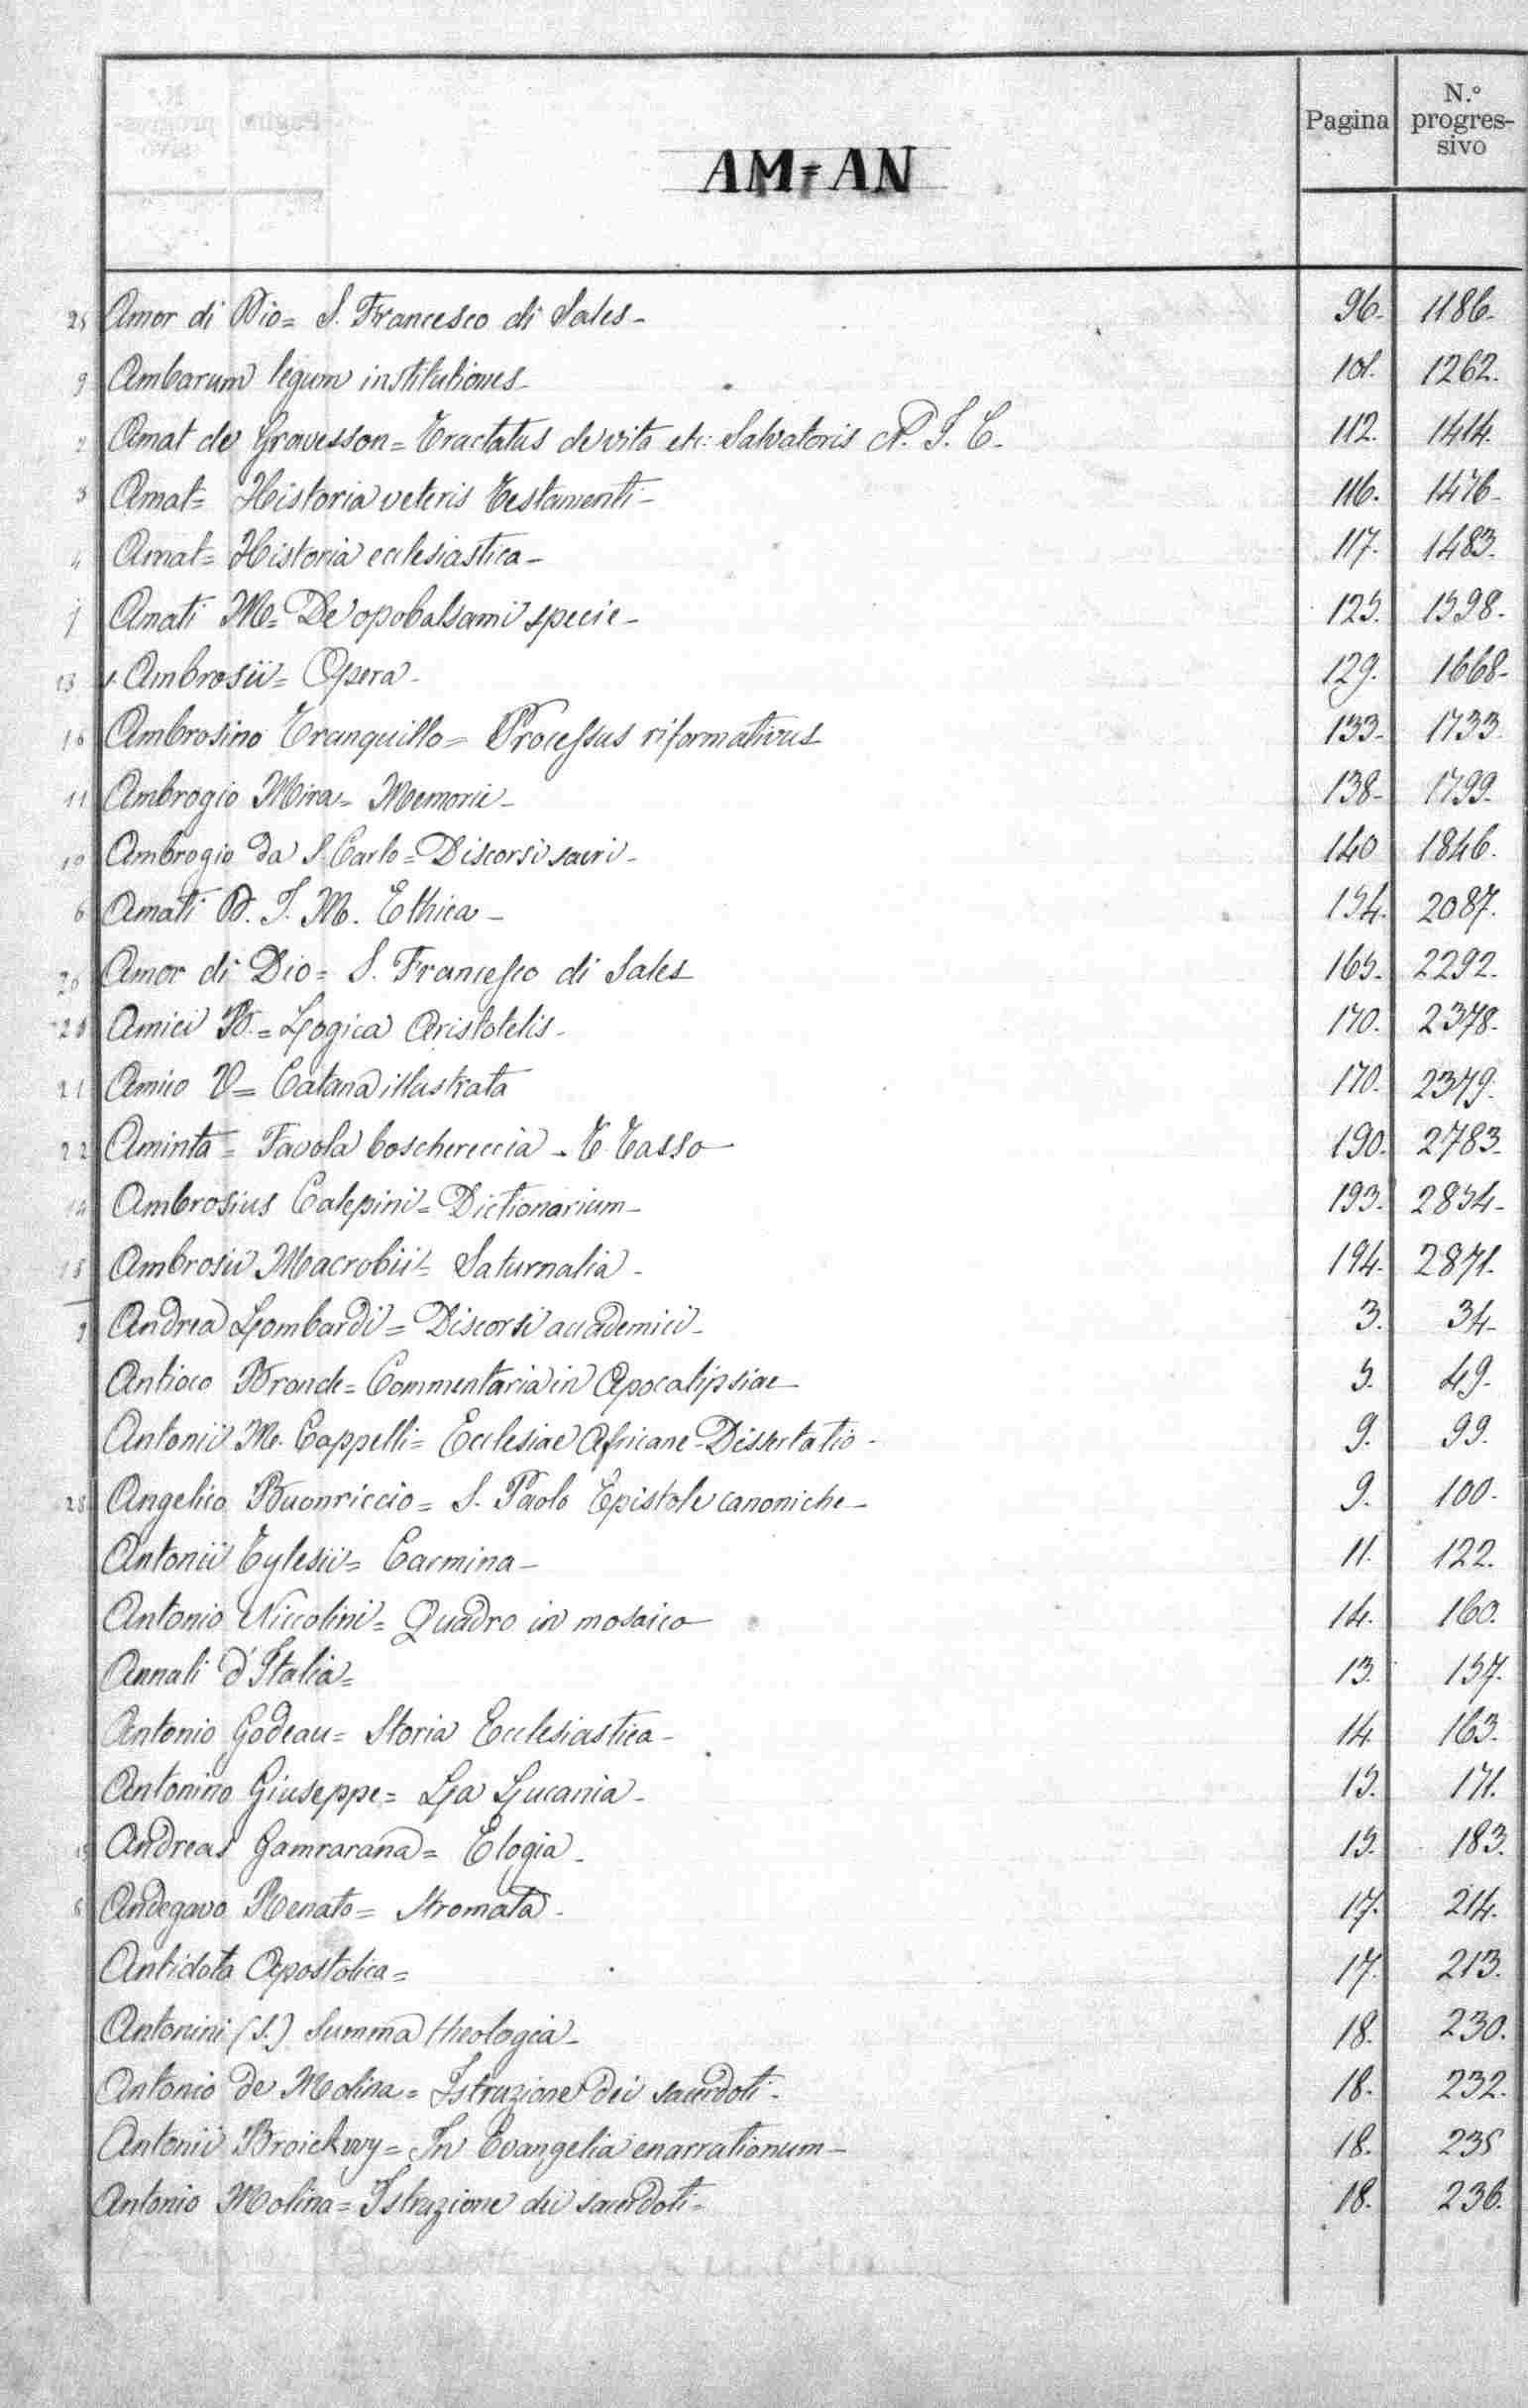 Pagina N.°
progres-
sivo
AM=AN
25 Amor di Dio= S. Francesco di Sales- 96- 1186-
9 Ambarum legum institutiones- 101. 1262.
2 Amat de Gravesson= Tractatus de vita etc: Salvatoris N. J. C. 112. 1414.
3 Amat= Historia veteris Testamenti- 116. 1476-
4 Amat= Historia ecclesiastica- 117. 1483.
Amati M= De opobalsami specie- 125. 1598.
13 S. Ambrosii= Opera- 129. 1668-
16 Ambrosino Tranquillo= Processus riformativus 133- 1733.
11 Ambrogio Mira= Memorie- 138- 1799-
10 Ambrogio da S. Carlo= Discorsi sacri- 140 1846.
6 Amati D. J. M. Ethica- 154. 2087.
26 Amor di Dio= S. Francesco di Sales 165- 2292.
20 Amici B.= Logica Aristotelis- 170. 2378-
21 Amico V= Catana illustrata 170. 2379.
22 Aminta= Favola boschereccia - T. Tasso 190. 2783-
14 Ambrosius Calepini= Dictionarium- 193. 2854-
15 Ambrosii Macrobii= Saturnalia- 194. 2871-
9 Andrea Lombardi= Discorsi accademici- 3. 34-
Antioco Bronde= Commentaria in Apocalipsiae 5. 49-
Antonii M. Cappelli= Ecclesiae Africane-Dissertatio- 9. 99.
28 Angelico Buonriccio= S. Paolo Epistole canoniche- 9. 100-
Antonii Tylesii= Carmina- 11. 122.
Antonio Niccolini= Quadro in mosaico 14. 160.
Annali d'Italia= 13. 157.
Antonio Godeau= Storia Ecclesiastica- 14 163-
Antonino Giuseppe= La Lucania- 15. 171.
15 Andreas Gamrarana= Elogia- 15. 183.
8 Andegavo Renato= Stromata- 17. 214.
Antidota Apostolica= 17. 213.
Antonini (S.) Summa theologia- 18. 230.
Antonio de Molina= Istruzione dei sacerdoti- 18. 232.
Antonii Broickwy= In Evangelia enarrationum- 18. 235
Antonio Molina= Istruzione dei sacerdoti- 18. 236.